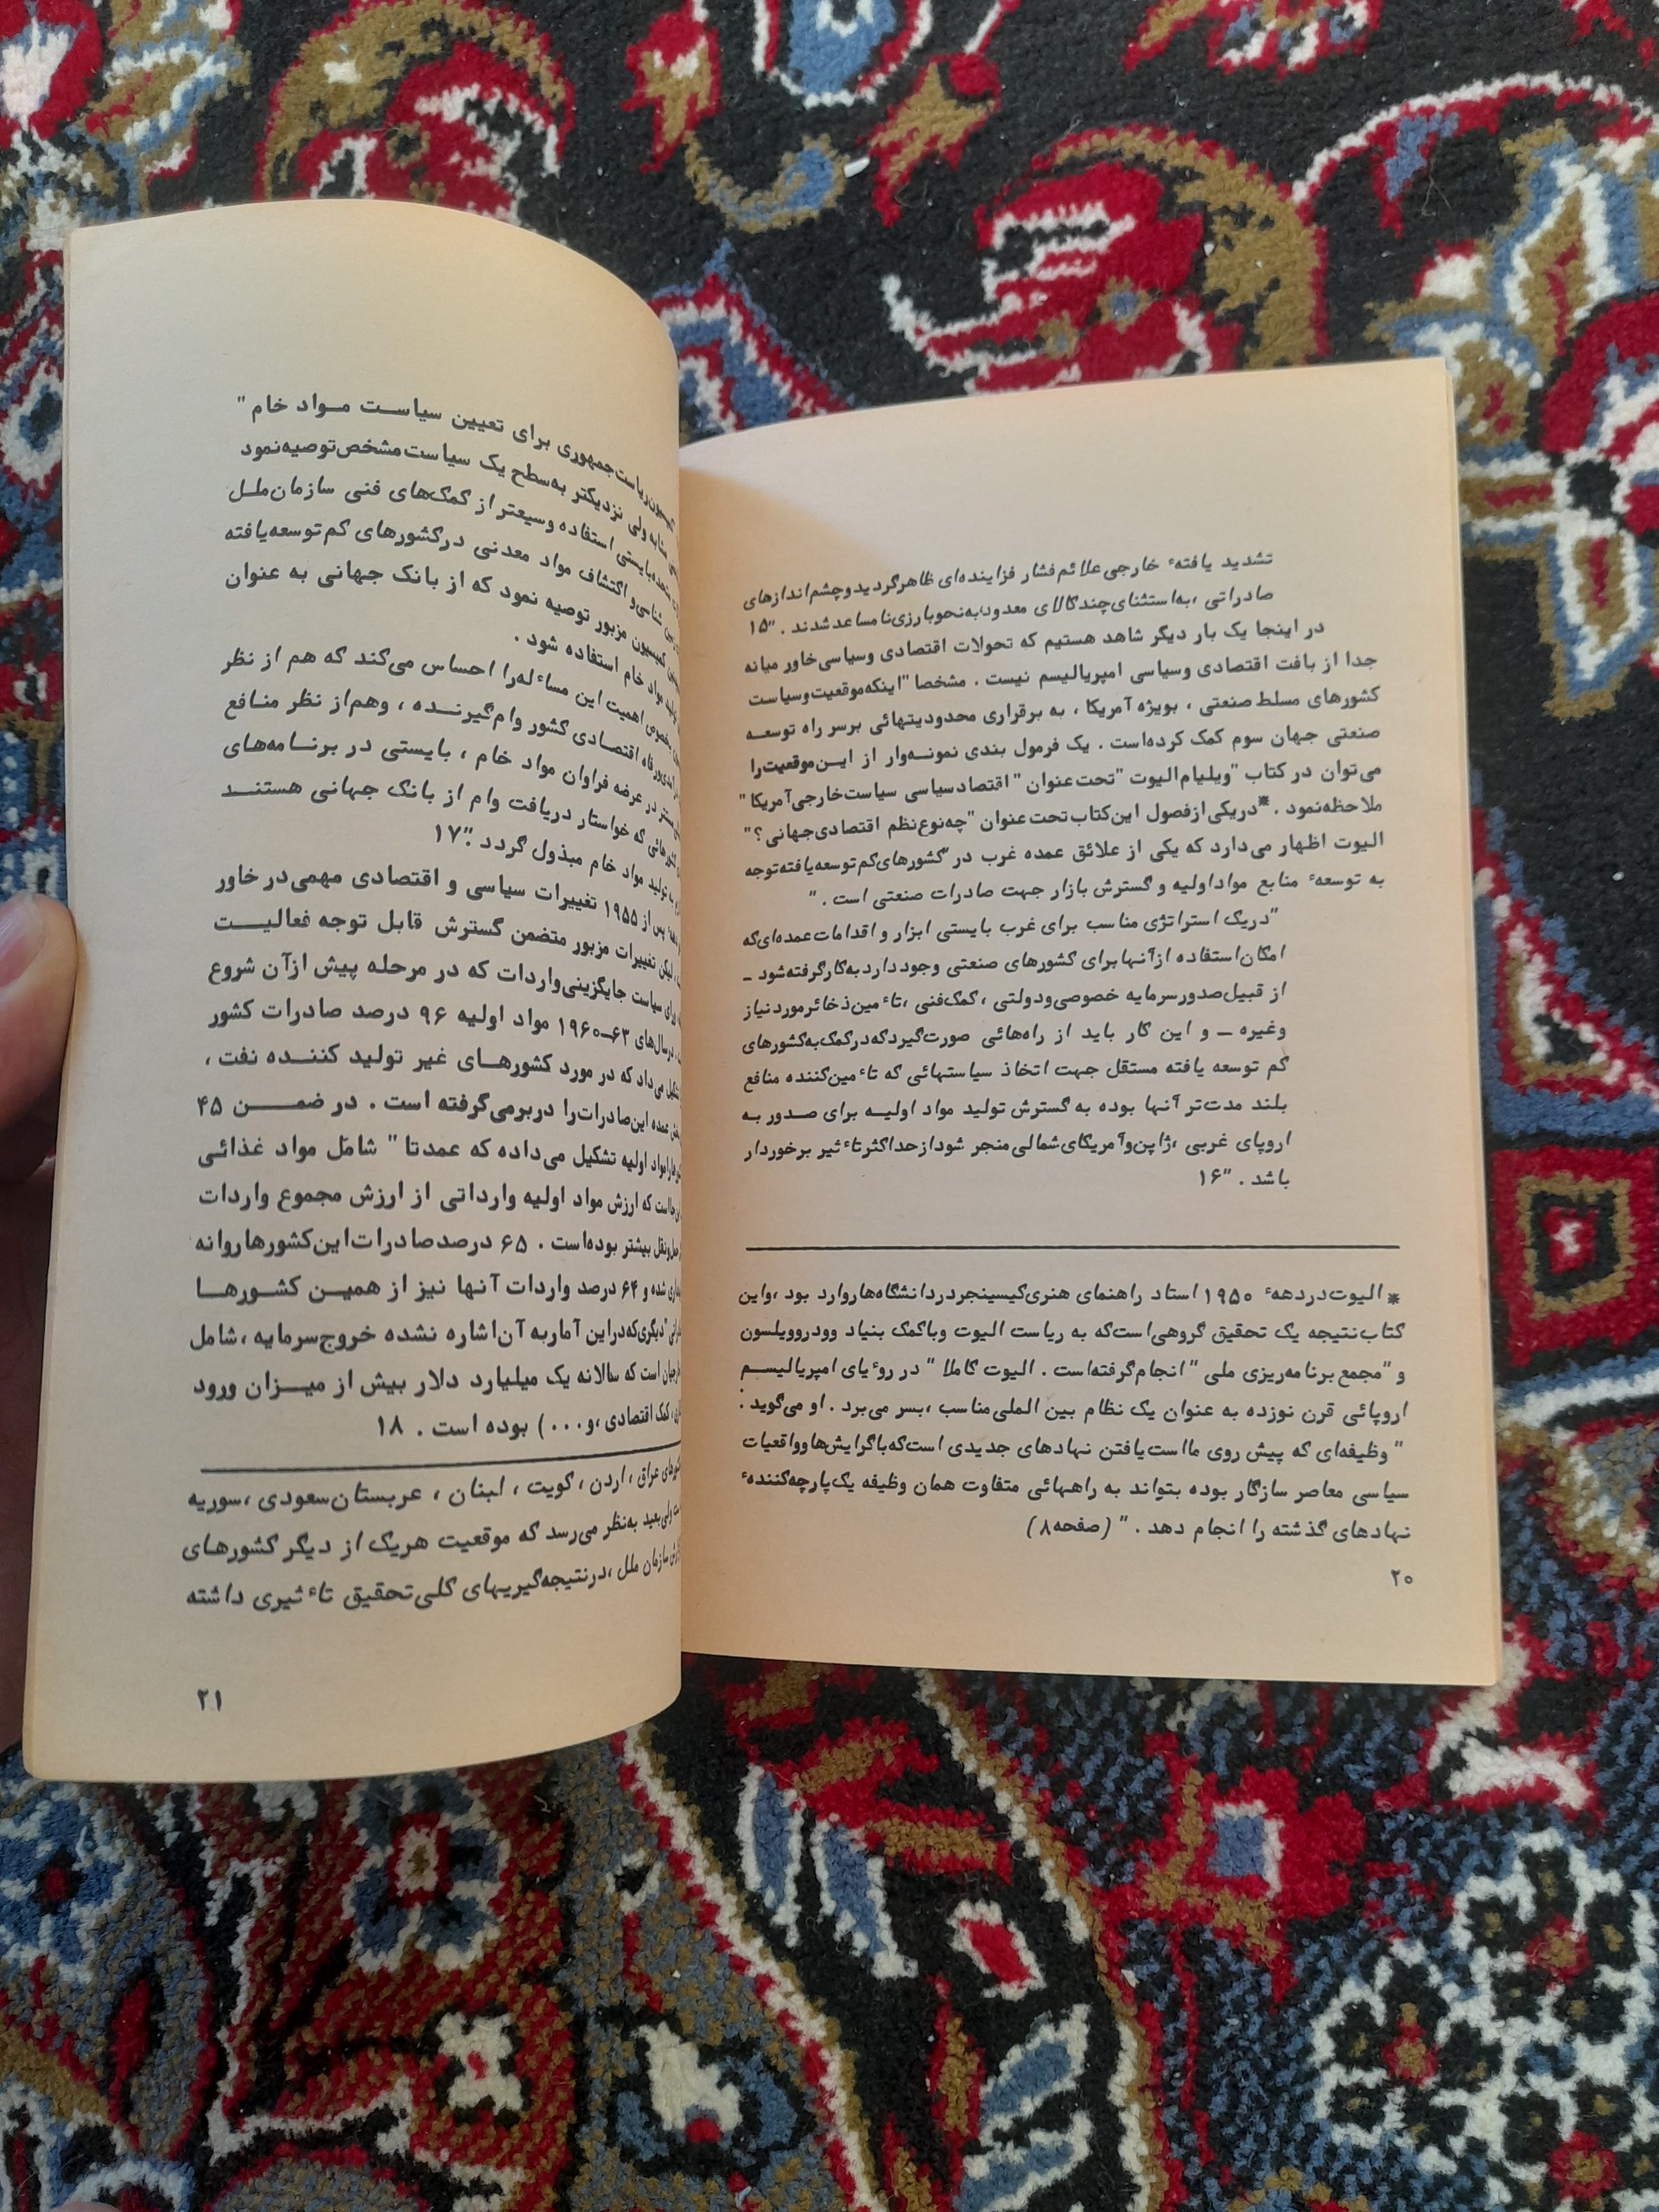 تشدید یافتهٔ خارجی علائم فشار فزاینده‌ای ظاهر گردید و چشم‌اندازهای
صادراتی ، به استثنای چند کالای معدود، به نحو بارزی نامساعد شدند . "۱۵
در اینجا یک بار دیگر شاهد هستیم که تحولات اقتصادی وسیاسی خاور میانه
جدا از بافت اقتصادی وسیاسی امپریالیسم نیست . مشخصا "اینکه موقعیت وسیاست
کشورهای مسلط صنعتی ، بویژه آمریکا ، به برقراری محدودیتهائی برسر راه توسعه
صنعتی جهان سوم کمک کرده‌است . یک فرمول بندی نمونه‌وار از این موقعیت را
می‌توان در کتاب "ویلیام الیوت "تحت عنوان "اقتصاد سیاسی سیاست خارجی آمریکا"
ملاحظه نمود . *دریکی از فصول این کتاب تحت عنوان "چه نوع نظم اقتصادی جهانی ؟"
الیوت اظهار می‌دارد که یکی از علائق عمده غرب در "کشورهای کم توسعه یافته توجه
به توسعهٔ منابع مواد اولیه و گسترش بازار جهت صادرات صنعتی است . "
"دریک استراتژی مناسب برای غرب بایستی ابزار و اقدامات عمده‌ای که
امکان استفاده از آنها برای کشورهای صنعتی وجود دارد به‌کار گرفته شود ـ
از قبیل صدور سرمایه خصوصی ودولتی ، کمک فنی ، تاٴمین ذخائر مورد نیاز
وغیره ـ و این کار باید از راه‌هائی صورت گیرد که در کمک به کشورهای
کم توسعه یافته مستقل جهت اتخاذ سیاستهائی که تاٴمین کننده منافع
بلند مدت‌تر آنها بوده به گسترش تولید مواد اولیه برای صدور به
اروپای غربی ، ژاپن و آمریکای شمالی منجر شود از حداکثر تاٴثیر برخوردار
باشد . "۱۶
* الیوت در دههٔ ۱۹۵۰ استاد راهنمای هنری کیسینجر در دانشگاه هاروارد بود ، واین
کتاب نتیجه یک تحقیق گروهی است که به ریاست الیوت وباکمک بنیاد وودرو ویلسون
و "مجمع برنامه‌ریزی ملی "انجام گرفته‌است . الیوت کاملا " در روٴیای امپریالیسم
اروپائی قرن نوزده به عنوان یک نظام بین المللی مناسب ، بسر می‌برد . او می‌گوید :
"وظیفه‌ای که پیش روی ما است یافتن نهادهای جدیدی است که باگرایش‌ها وواقعیات
سیاسی معاصر سازگار بوده بتواند به راههائی متفاوت همان وظیفه یک پارچه کنندهٔ
نهادهای گذشته را انجام دهد . " (صفحه ۸)
۲۰
ریاست جمهوری برای تعیین سیاست مواد خام "
ولی نزدیکتر به سطح یک سیاست مشخص توصیه نمود
بایستی استفاده وسیعتر از کمک‌های فنی سازمان ملل
شناسی و اکتشاف مواد معدنی درکشورهای کم توسعه یافته
کمیسیون مزبور توصیه نمود که از بانک جهانی به عنوان
مواد خام استفاده شود .
اهمیت این مساٴله را احساس می‌کند که هم از نظر
رفاه اقتصادی کشور وام گیرنده ، وهم از نظر منافع
در عرضه فراوان مواد خام ، بایستی در برنامه‌های
که خواستار دریافت وام از بانک جهانی هستند
تولید مواد خام مبذول گردد ."۱۷
پس از ۱۹۵۵ تغییرات سیاسی و اقتصادی مهمی در خاور
لیکن تغییرات مزبور متضمن گسترش قابل توجه فعالیت
سیاست جایگزینی واردات که در مرحله پیش از آن شروع
درسال‌های ۶۳ـ۱۹۶۰ مواد اولیه ۹۶ درصد صادرات کشور
می‌داد که در مورد کشورهای غیر تولید کننده نفت ،
عمده این صادرات را دربر می‌گرفته است . در ضمن ۴۵
مواد اولیه تشکیل می‌داده که عمدتا " شامل مواد غذائی
است که ارزش مواد اولیه وارداتی از ارزش مجموع واردات
ونقل بیشتر بوده‌است . ۶۵ درصد صادرات این کشورها روانه
شده و ۶۴ درصد واردات آنها نیز از همین کشورها
دیگری که در این آمار به آن اشاره نشده خروج سرمایه ، شامل
است که سالانه یک میلیارد دلار بیش از میزان ورود
کمک اقتصادی ، و . . . ) بوده است . ۱۸
عراق ، اردن ، کویت ، لبنان ، عربستان سعودی ، سوریه
ولی بعید به‌نظر می‌رسد که موقعیت هریک از دیگر کشورهای
سازمان ملل ، درنتیجه‌گیریهای کلی تحقیق تاٴثیری داشته
۲۱